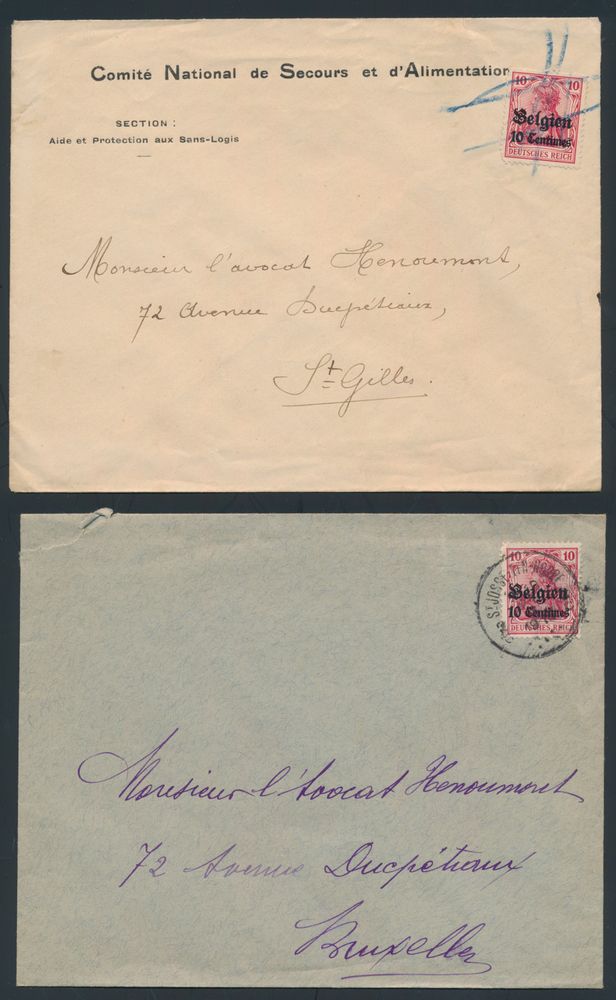 Comité National de Secours et d'Alimentation
SECTION :
Aide et Protection aux Sans-Logis
10 10
Belgien
10 Centimes
DEUTSCHES REICH
Monsieur l'avocat Henoumont,
72 Avenue Ducpétiaux,
St Gilles.
10 10
Belgien
10 Centimes
DEUTSCHES REICH
ST JOSSE-TEN-NOODE
Monsieur l'Avocat Henoumont
72 Avenue Ducpétiaux
Bruxelles